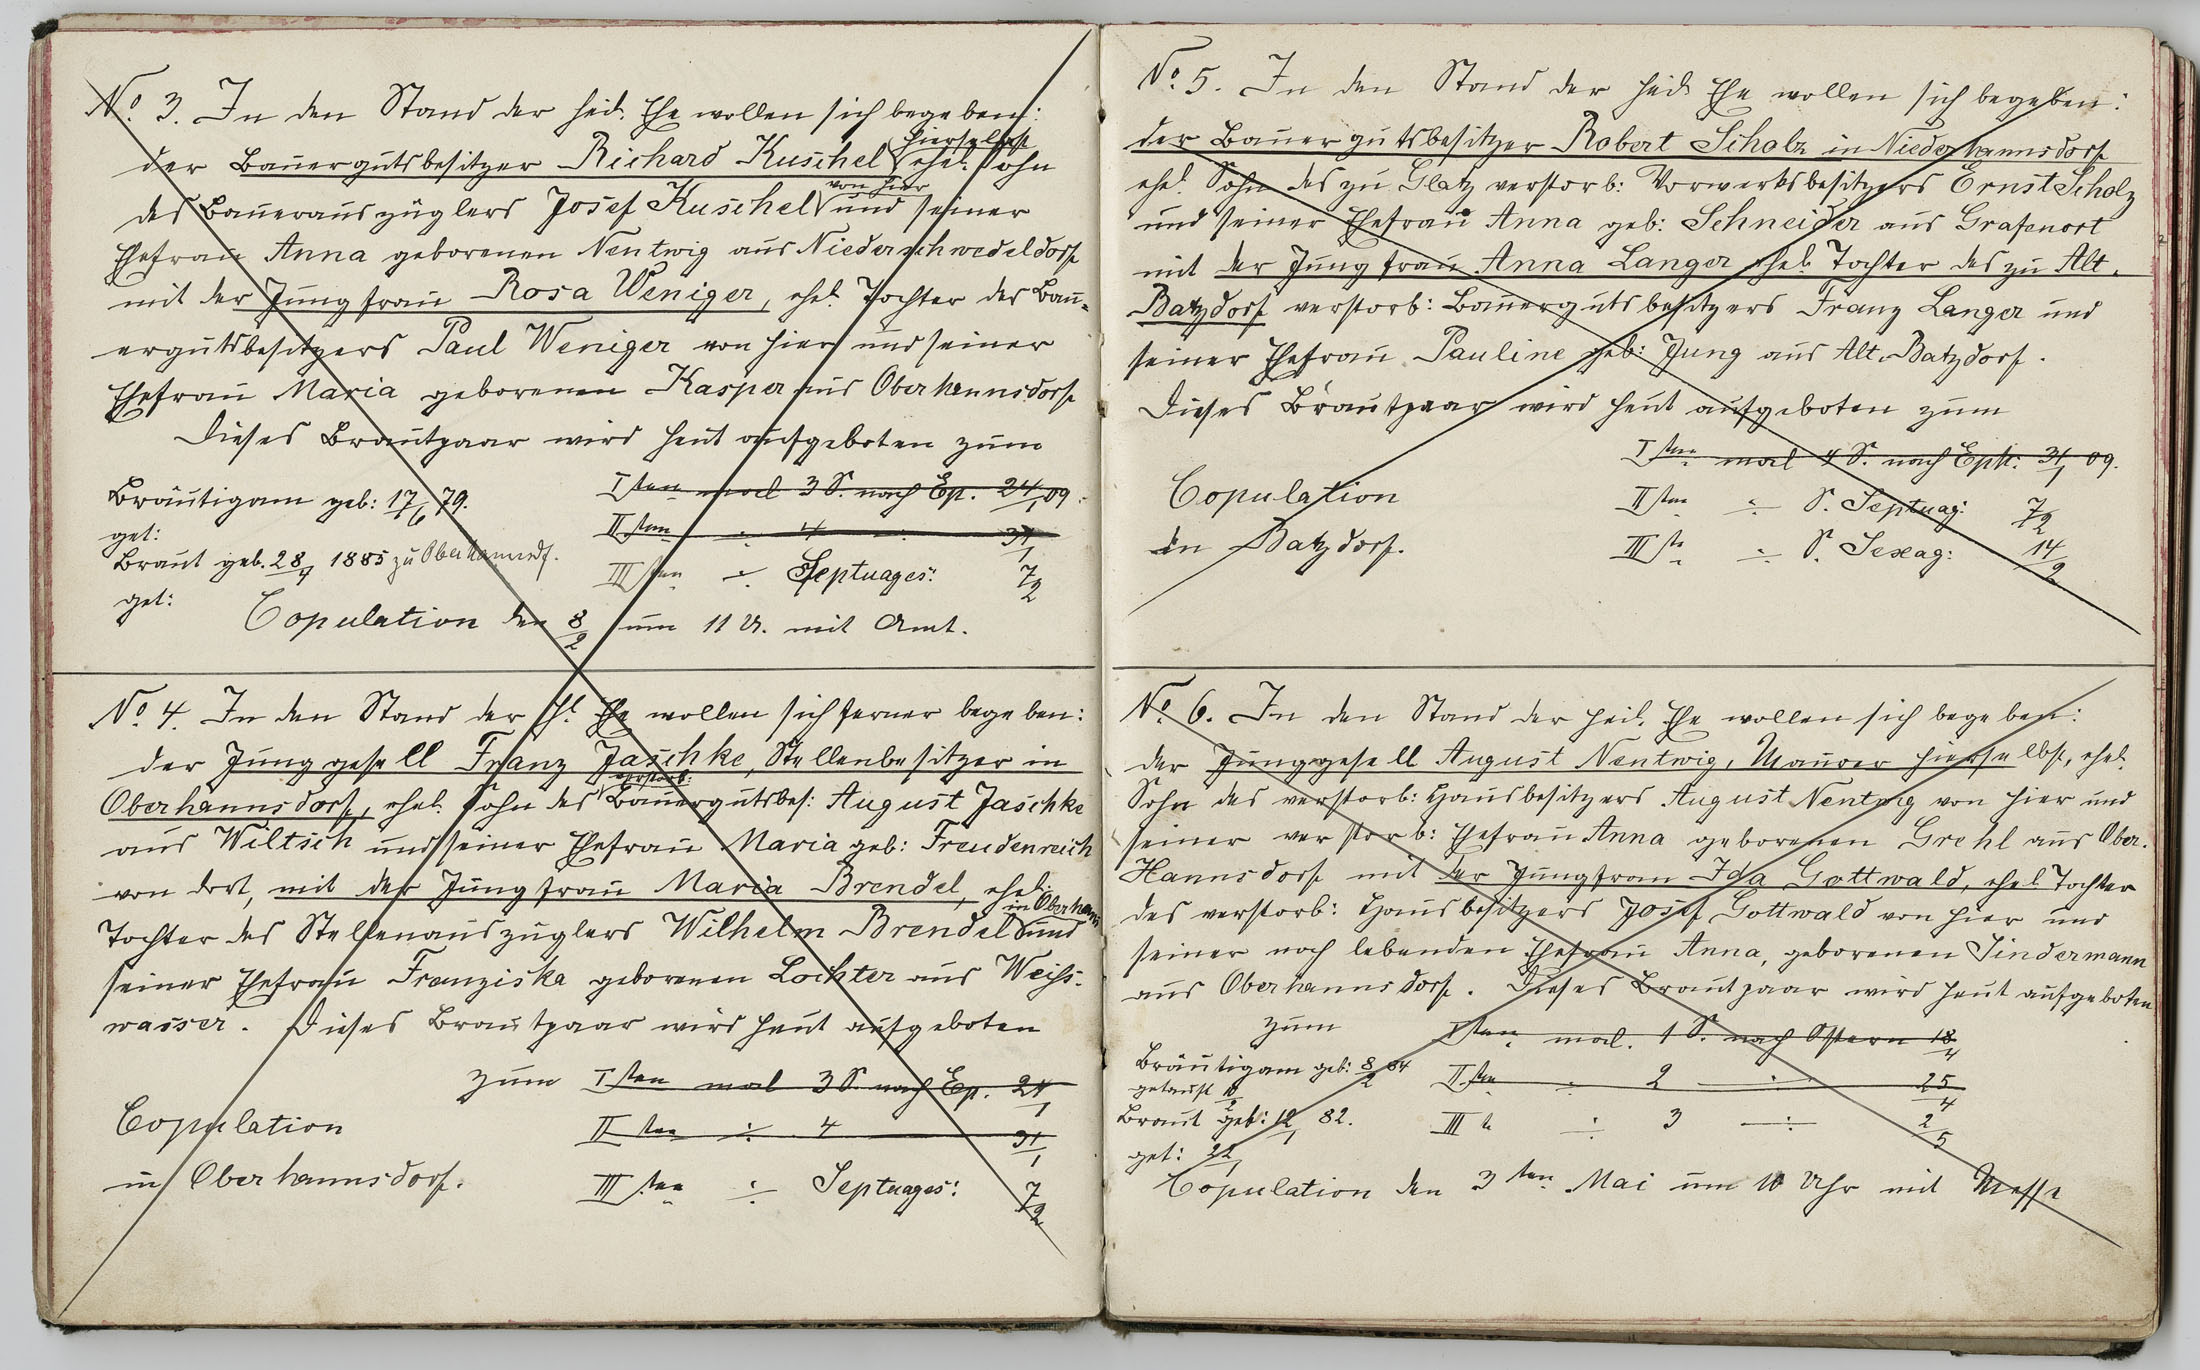 No. 3. In den Stand der heil. Ehe wollen sich begeben:
der Bauergutsbesitzer Richard Kuschel hierselbst ehel. Sohn
des Bauerauszüglers Josef Kuschel von hier und seiner
Ehefrau Anna geborenen Nentwig aus Niederschwedeldorf
mit der Jungfrau Rosa Weniger, ehel. Tochter des Bau-
ergutsbesitzers Paul Weniger von hier und seiner
Ehefrau Maria geborenen Kasper aus Oberhannsdorf
Dieses Brautpaar wird heut aufgeboten zum
Iten mal 3 S. nach Ep. 24/1 09.
Bräutigam geb: 17/6 79.
IIten ÷ 4 ÷ 31/1
get:
Braut geb. 28/4 1885 zu Oberhannsdf.
IIIten ÷ Septuages: 7/2
get:
Copulation den 8/2 um 11 U. mit Amt.
No. 4. In den Stand der hl. Ehe wollen sich ferner begeben:
der Junggesell Franz Jaschke, Stellenbesitzer in
Oberhannsdorf, ehel. Sohn des verstorb: Bauergutsbes: August Jaschke
aus Wiltsch und seiner Ehefrau Maria geb: Freudenreich
von dort, mit der Jungfrau Maria Brendel, ehel.
Tochter des Stellenauszüglers Wilhelm Brendel in Oberhanns und
seiner Ehefrau Franziska geborenen Lochter aus Weiß-
wasser. Dieses Brautpaar wird heut aufgeboten
zum Iten mal 3 S. nach Ep. 24/1
Copulation
IIten ÷ 4 31/1
in Oberhannsdorf.
IIIten ÷ Septuages: 7/2
No. 5. In den Stand der heil. Ehe wollen sich begeben:
der Bauergutsbesitzer Robert Scholz in Niederhannsdorf
ehel. Sohn des zu Glatz verstorb: Vorwerksbesitzers Ernst Scholz
und seiner Ehefrau Anna geb: Schneider aus Grafenort
mit der Jungfrau Anna Langer ehel. Tochter des zu Alt-
Batzdorf verstorb: Bauergutsbesitzers Franz Langer und
seiner Ehefrau Pauline geb: Jung aus Alt-Batzdorf.
Dieses Brautpaar wird heut aufgeboten zum
Iten mal 4 S. nach Eph: 31/1 09.
Copulation
IIten ÷ S. Septuag: 7/2
in Batzdorf.
IIIte ÷ S. Sexag: 14/2
No. 6. In den Stand der heil. Ehe wollen sich begeben:
der Junggesell August Nentwig, Maurer hierselbst, ehel.
Sohn des verstorb: Hausbesitzers August Nentwig von hier und
seiner verstorb: Ehefrau Anna geborenen Grehl aus Ober-
Hannsdorf mit der Jungfrau Ida Gottwald, ehel. Tochter
des verstorb: Hausbesitzers Josef Gottwald von hier und
seiner noch lebenden Ehefrau Anna, geborenen Sindermann
aus Oberhannsdorf. Dieses Brautpaar wird heut aufgeboten
zum Iten mal. 1 S. nach Ostern 18/4
Bräutigam geb: 8/2 84
IIten ÷ 2 ÷ 25/4
getauft 10/2
Braut geb: 12/1 82.
IIIte ÷ 3 ÷ 2/5
get: 22/1
Copulation den 3ten Mai um 10 Uhr mit Messe